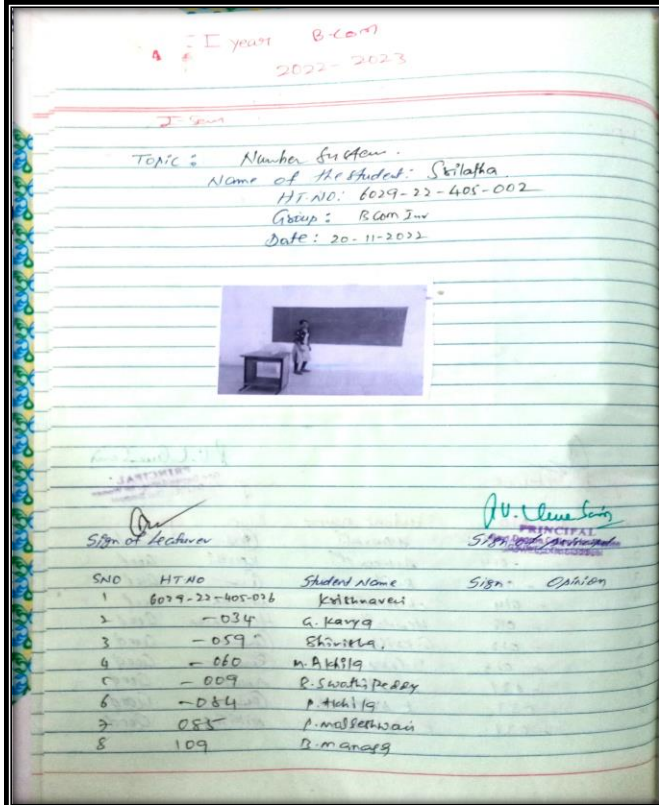 I year B.Com
2022-2023
I-Sem
Topic: Number System.
Name of the student: Srilatha
HT.NO: 6029-22-405-002
Group: B Com
Date: 20-11-2022
PRINCIPAL
Sign of Lecturer
Sign of
SNO HT NO Student Name Sign- Opinion
1 6029-22-405-026 Krishnaveni
2 -034 G. Kavya
3 -059 Shirisha.
4 -060 M. Akhila
5 -009 Swathi Reddy
6 -084 P. Akhila
7 085 P. malleshwari
8 109 B. manasa